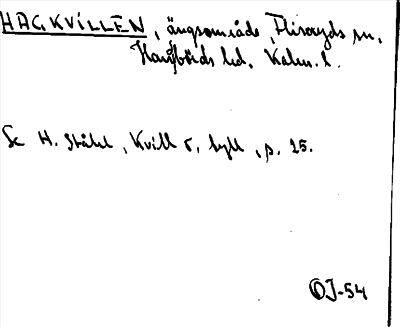 HAGKVILLEN, ängsområde, Fliseryds sn,
Handbörds hd, Kalm. l.
Se H. Ståhl, Kvill o. hyll, p. 15.
OJ-54